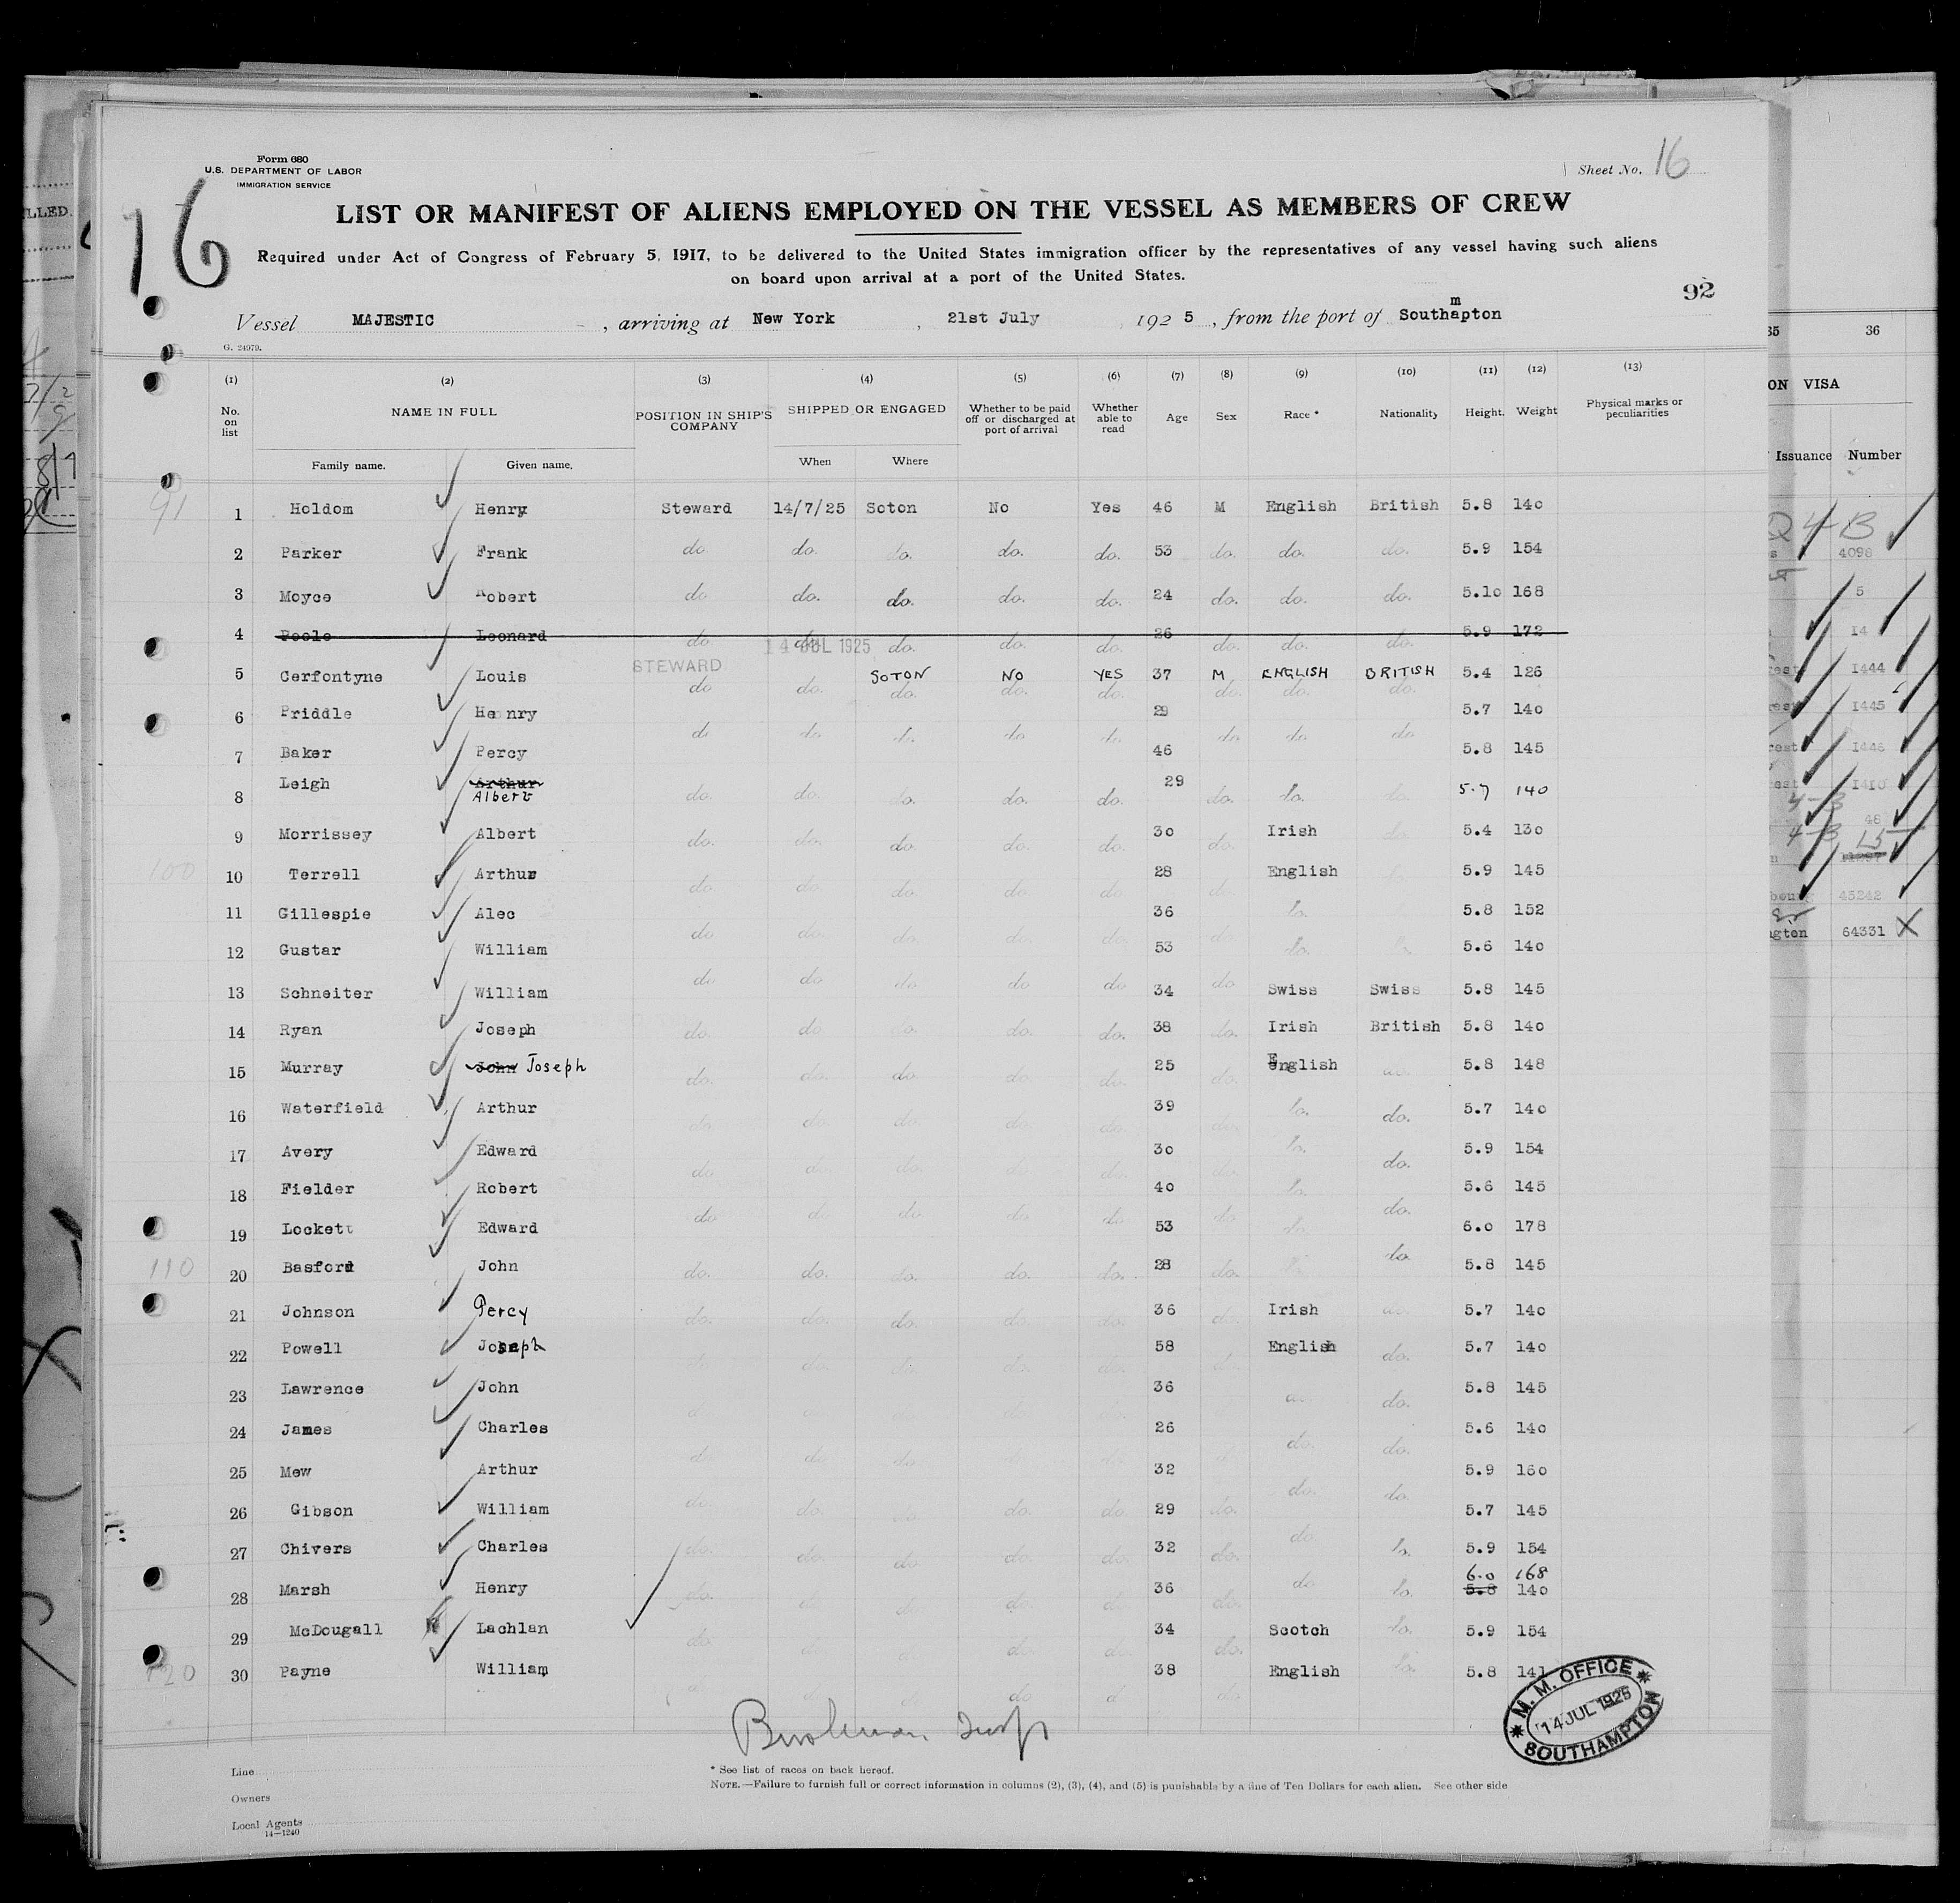 Form 680
U.S. DEPARTMENT OF LABOR
IMMIGRATION SERVICE
Sheet No. 16
16
LIST OR MANIFEST OF ALIENS EMPLOYED ON THE VESSEL AS MEMBERS OF CREW
Required under Act of Congress of February 5, 1917, to be delivered to the United States immigration officer by the representatives of any vessel having such aliens
on board upon arrival at a port of the United States.
92
Vessel MAJESTIC , arriving at New York , 21st July 192 5 , from the port of Southapton
m
G. 24979.
(1) (2) (3) (4) (5) (6) (7) (8) (9) (10) (11) (12) (13)
No. on list NAME IN FULL POSITION IN SHIP'S COMPANY SHIPPED OR ENGAGED Whether to be paid off or discharged at port of arrival Whether able to read Age Sex Race * Nationality Height. Weight Physical marks or peculiarities
Family name. Given name. When Where
91
1 Holdom Henry Steward 14/7/25 Soton No Yes 46 M English British 5.8 140
2 Parker Frank do do. do. do. do. 53 do. do. do. 5.9 154
3 Moyce Robert do do. do. do. do. 24 do. do. do. 5.10 168
4 Poole Leonard do do. do. do. do. 26 do. do. do. 5.9 172
STEWARD 14 JUL 1925
5 Cerfontyne Louis SOTON NO YES 37 M ENGLISH BRITISH 5.4 126
do do. do. do. do. do. do. do.
6 Priddle Henry 29 5.7 140
do do do do do do do
7 Baker Percy 46 5.8 145
8 Leigh Arthur Albert do. do. do. do. do. 29 do. do. do. 5.7 140
9 Morrissey Albert do. do. do. do. do. 30 do. Irish do. 5.4 130
100
10 Terrell Arthur do. do. do. do. do. 28 do. English 5.9 145
11 Gillespie Alec do do. do. do do. 36 do. do. 5.8 152
12 Gustar William do do do do do 53 do do. 5.6 140
13 Schneiter William 34 Swiss Swiss 5.8 145
14 Ryan Joseph do. do do. do. do. 38 do. Irish British 5.8 140
15 Murray John Joseph do. do. do. do. do. 25 do. English do. 5.8 148
16 Waterfield Arthur do. do. do. do. do. 39 do. do. do. 5.7 140
17 Avery Edward do do. do. do. do. 30 do. do. do. 5.9 154
18 Fielder Robert do do do do do 40 do do. do. 5.6 145
19 Lockett Edward 53 do. do. 6.0 178
110
20 Basford John do. do. do. do. do. 28 do. 5.8 145
21 Johnson Percy do. do. do. do. do. 36 do. Irish do. 5.7 140
22 Powell Joseph do. do. do. 58 English do. 5.7 140
23 Lawrence John 36 do. do. 5.8 145
24 James Charles do. do. do. do. do. 26 do. do. 5.6 140
25 Mew Arthur do. do. do. do. do. 32 do. do. 5.9 160
26 Gibson William do. do. do. do. do. 29 do. do 5.7 145
27 Chivers Charles do. do. do. do. do. 32 do. do. 5.9 154
6.0 168
28 Marsh Henry do. do. do. do. do. 36 do. do do. 5.8 140
29 McDougall Lachlan do. do. do. do. 34 do. Scotch do. 5.9 154
120
30 Payne William do do 38 do English do. 5.8 141
M. M. OFFICE
14 JUL 1925
SOUTHAMPTON
Line
Owners
Local Agents
14—1240
* See list of races on back hereof.
NOTE.—Failure to furnish full or correct information in columns (2), (3), (4), and (5) is punishable by a fine of Ten Dollars for each alien. See other side
LLED.
35 36
ON VISA
Issuance Number
4098
5
14
1444
1445
1446
1410
48
45242
gton 64331 X